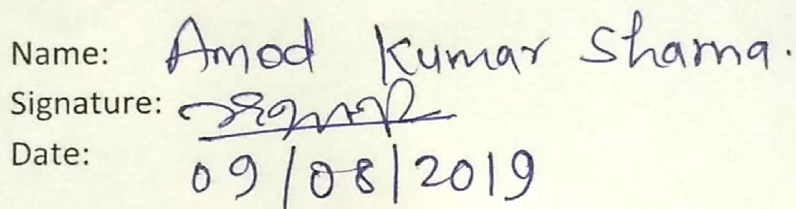 Name: Amod Kumar Sharma.
Signature:
Date: 09/08/2019